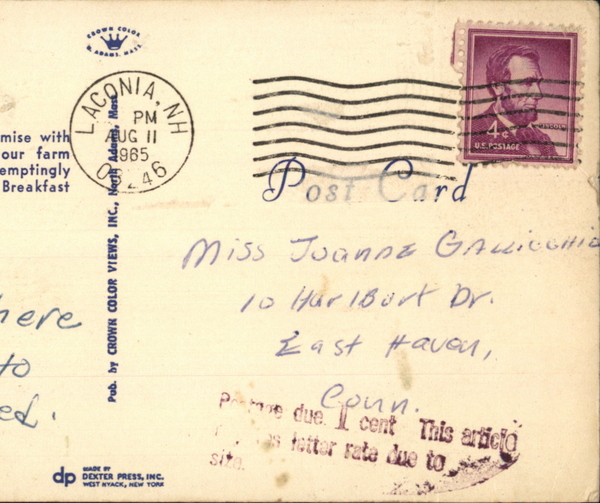 CROWN COLOR
N. ADAMS, MASS.
LACONIA, NH
PM
AUG 11
1965
4¢
LINCOLN
U.S. POSTAGE
mise with
our farm
emptingly
Breakfast
Post Card
Pub. by CROWN COLOR VIEWS, INC., North Adams, Mass.
Miss Joanne
10 Hurlburt Dr.
East Haven,
Conn.
here
to
ed.
Postage due 1 cent This article
letter rate due to
size.
dp
MADE BY
DEXTER PRESS, INC.
WEST NYACK, NEW YORK